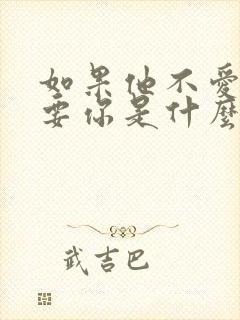 如果他不愛
要你是什麼
武吉巴